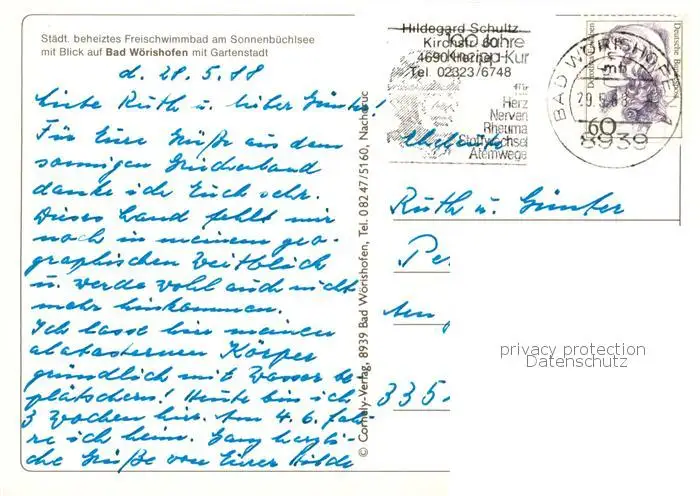 Städt. beheiztes Freischwimmbad am Sonnenbüchlsee
mit Blick auf Bad Wörishofen mit Gartenstadt
d. 28.5.88
Liebe Ruth u. lieber Günter!
Für Eure Grüße aus dem
sonnigen Griechenland
danke ich Euch sehr.
Dieses Land fehlt mir
noch in meinem geo-
graphischen Weitblick
u. werde wohl auch nicht
mehr hinkommen.
Ich lasse hier meinen
alabasternen Körper
gründlich mit Wasser be-
plätschern! Heute bin ich
3 Wochen hier. Am 4.6. fah-
re ich heim. Ganz herzli-
che Grüße von Eurer Hilde
© Cornely-Verlag, 8939 Bad Wörishofen, Tel. 08247/5160, Nachdruc
Hildegard Schultz
Kirchstr. 60
4690 Herne
Tel. 02323/6748
100 Jahre
Kneipp-Kur
für
Herz
Nerven
Rheuma
Stoffwechsel
Atemwege
BAD WÖRISHOFEN
29.5.88
8939
Deutsche Bundespost
60
Eheleute
Ruth u. Günter
Pe
Am
335
privacy protection
Datenschutz